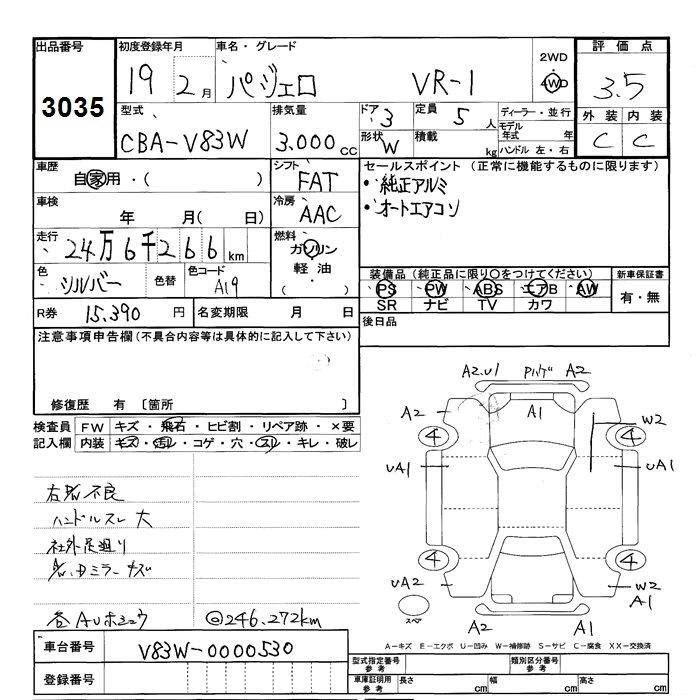 出品番号 初度登録年月 車名・グレード 評価点
3035 19 2月 パジェロ VR-1 2WD 4WD 3.5
型式 排気量 ドア 3 定員 5 人 ディーラー・並行 外装 内装
CBA-V83W 3.000 cc 形状 W 積載 kg モデル年式 年 ハンドル 左・右 C C
車歴 自家用・( ) シフト FAT セールスポイント (正常に機能するものに限ります)
・純正アルミ
車検 年 月( 日) 冷房 AAC ・オートエアコン
走行 24万6千266km 燃料 ガソリン
軽油・
( )
色 シルバー 色替 色コード A19
装備品(純正品に限り○をつけてください) 新車保証書
PS PW ABS エアB AW 有・無
SR ナビ TV カワ
R券 15.390 円 名変期限 月 日 後日品
注意事項申告欄(不具合内容等は具体的に記入して下さい)
修復歴 有 〔箇所 〕
検査員 FW キズ・飛石・ヒビ割・リペア跡・×要
記入欄 内装 キズ・汚れ・コゲ・穴・スレ・キレ・破レ
ハンドルスレ 大
社外足廻り
@246.272km
車台番号 V83W-0000530
登録番号
A2.U1 A2
A2 A1 W2
4 4
UA1 UA1
4 4
UA2 W2
A1
スペア
A2 A1
A-キズ E-エクボ U-凹み W-補修跡 S-サビ C-腐食 XX-交換済
型式指定番号 参考 類別区分番号 参考
車庫証明用 参考 長さ cm 幅 cm 高さ cm